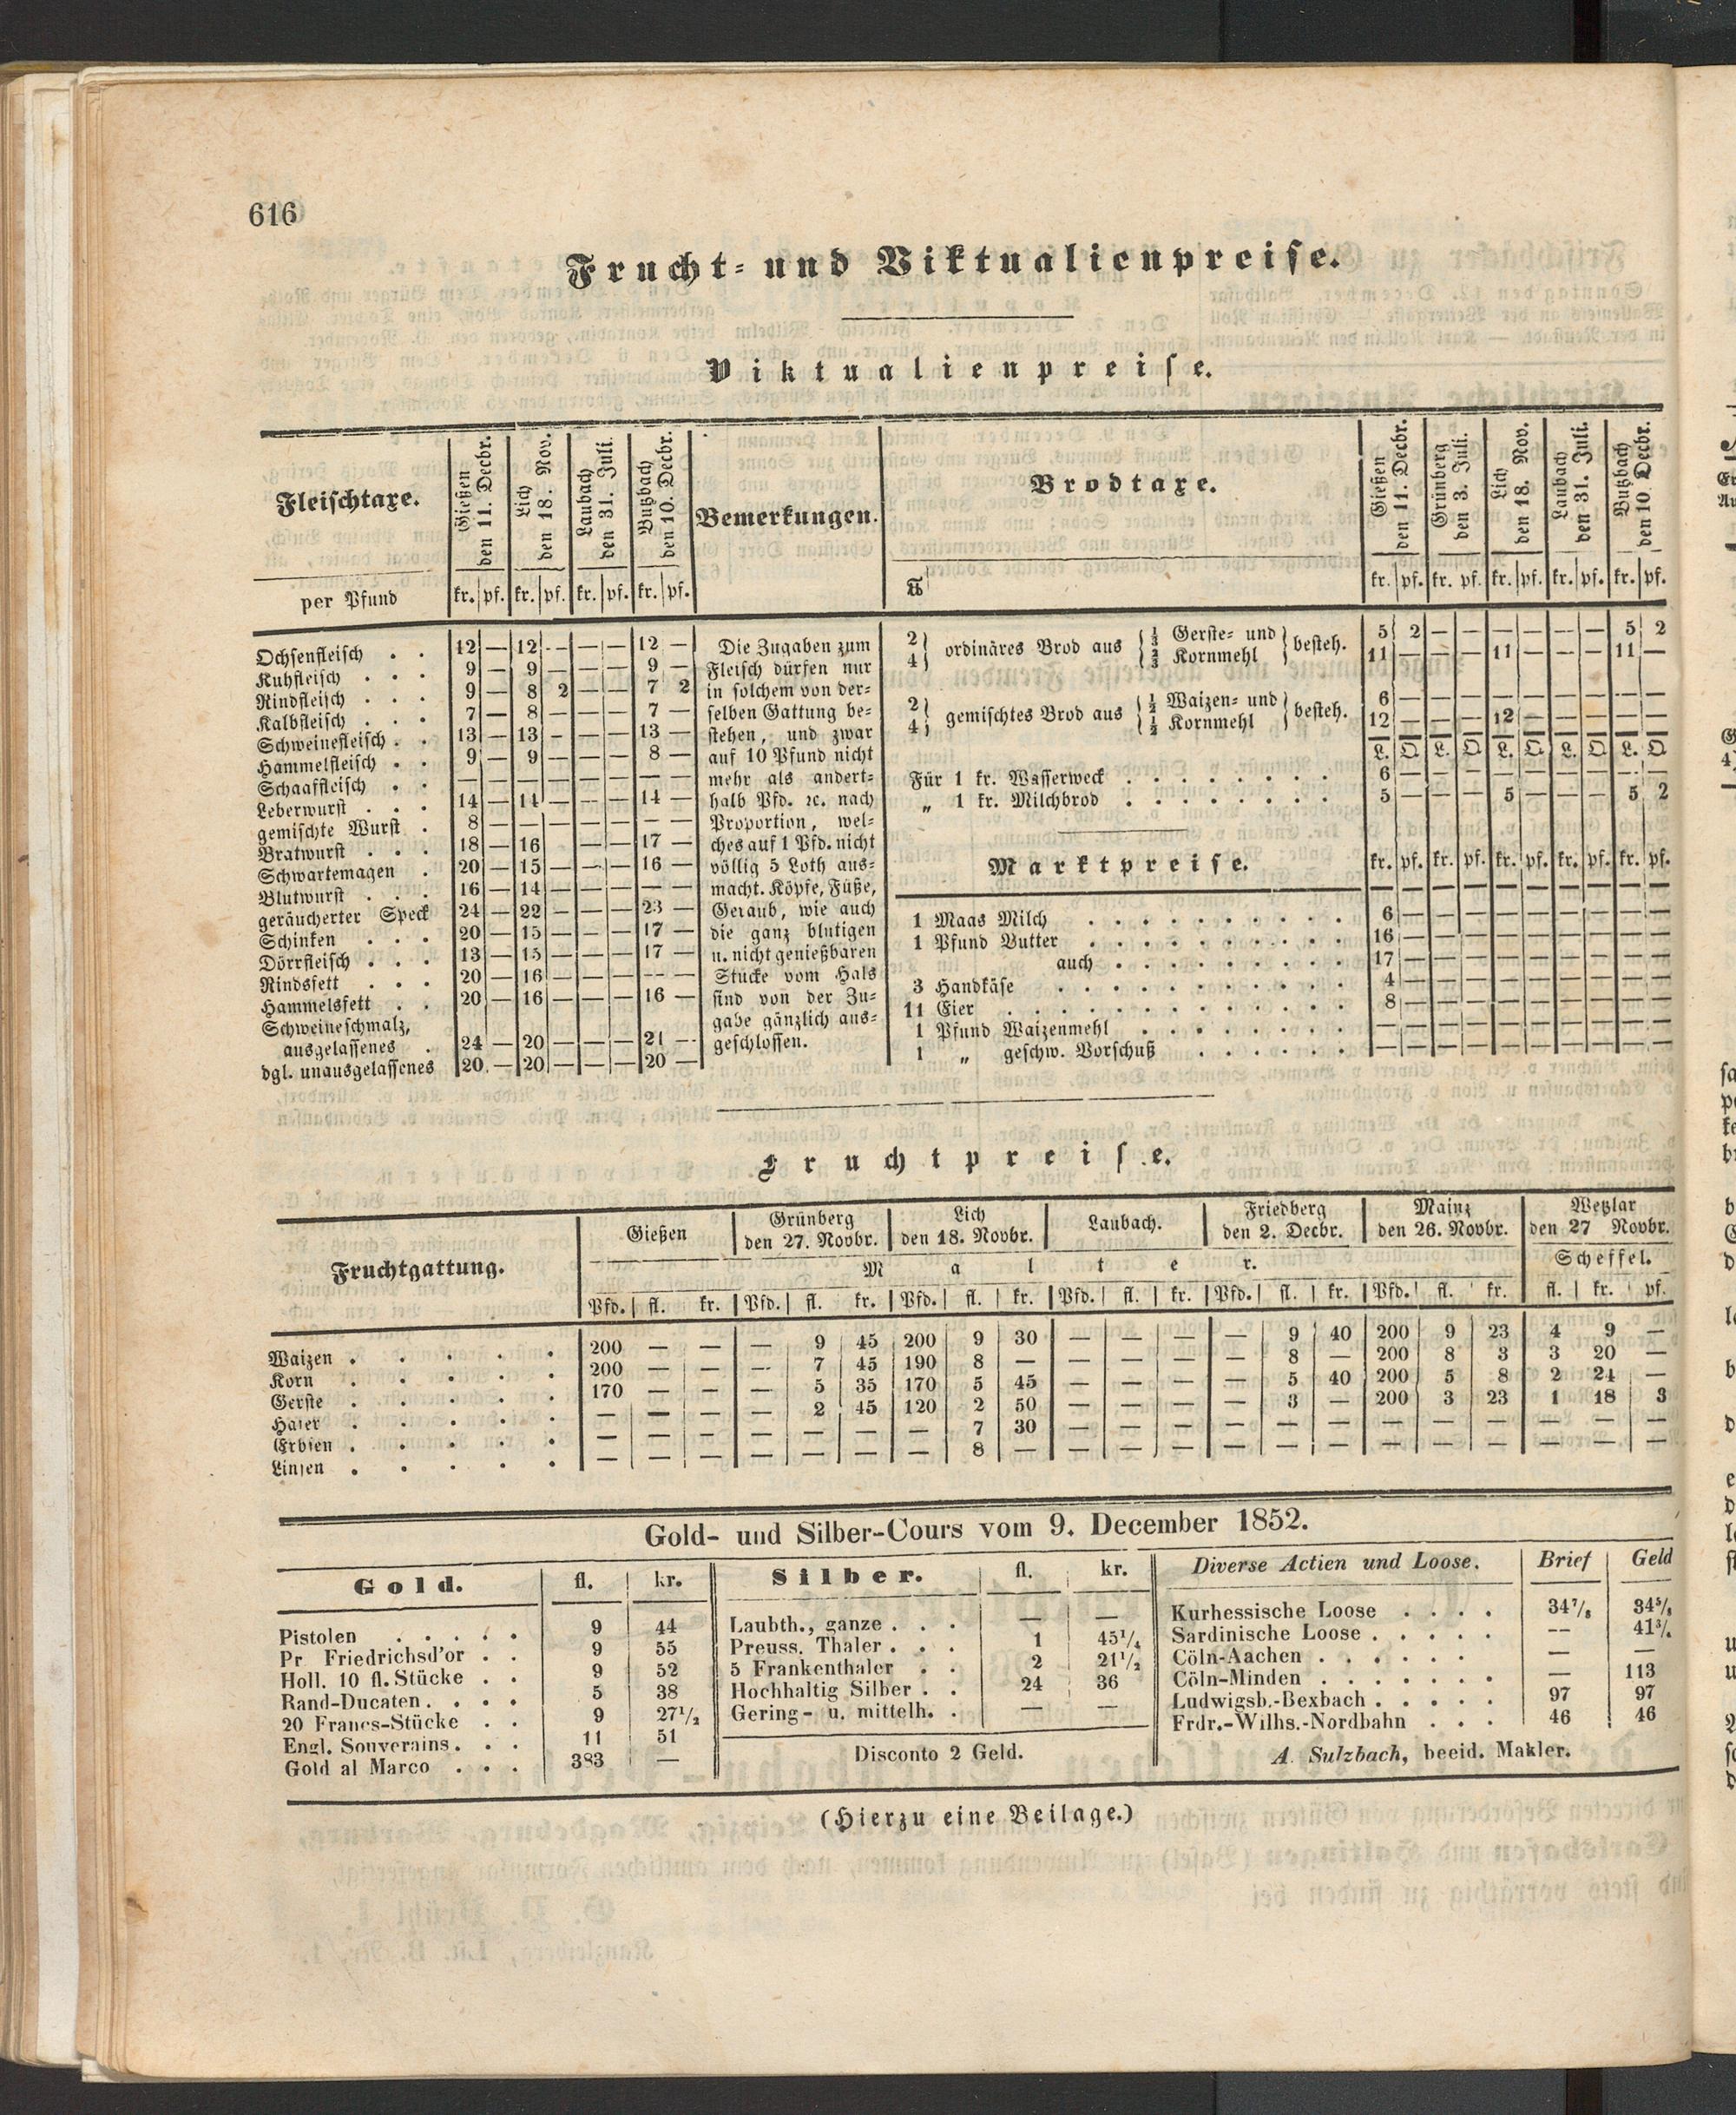 616
Frucht- und Viktualienpreise.
Viktualienpreise.
Fleischtaxe. | Gießen den 11. Decbr. | Lich den 18. Nov. | Laubach den 31. Juli. | Butzbach den 10. Decbr. | Bemerkungen.
per Pfund | kr. | pf. | kr. | pf. | kr. | pf. | kr. | pf.
Ochsenfleisch . . 12 — 12 — — — 12 —
Kuhfleisch . . . 9 — 9 — — — 9 —
Rindfleisch . . . 9 — 8 2 — — 7 2
Kalbfleisch . . . 7 — 8 — — — 7 —
Schweinefleisch . . 13 — 13 — — — 13 —
Hammelfleisch . . 9 — 9 — — — 8 —
Schaaffleisch . . — — — — — — — —
Leberwurst . . . 14 — 14 — — — 14 —
gemischte Wurst . 8 — — — — — — —
Bratwurst . . . 18 — 16 — — 17 —
Schwartemagen . 20 — 15 — — — 16 —
Blutwurst . . . 16 — 14 — — — — —
geräucherter Speck 24 — 22 — — — 23 —
Schinken . . . 20 — 15 — — — 17 —
Dörrfleisch . . . 13 — 15 — — — 17 —
Rindsfett . . . 20 — 16 — — — — —
Hammelsfett . . 20 — 16 — — — 16 —
Schweineschmalz,
ausgelassenes . 24 — 20 — — — 21 —
dgl. unausgelassenes 20 — 20 — — — 20 —
Die Zugaben zum
Fleisch dürfen nur
in solchem von der-
selben Gattung be-
stehen, und zwar
auf 10 Pfund nicht
mehr als andert-
halb Pfd. ꝛc. nach
Proportion, wel-
ches auf 1 Pfd. nicht
völlig 5 Loth aus-
macht. Köpfe, Füße,
Geraub, wie auch
die ganz blutigen
u. nicht genießbaren
Stücke vom Hals
sind von der Zu-
gabe gänzlich aus-
geschlossen.
Brodtaxe. | Gießen den 11. Decbr. | Grünberg den 3. Juli. | Lich den 18. Nov. | Laubach den 31. Juli. | Butzbach den 10. Decbr.
℔ | kr. | pf. | kr. | pf. | kr. | pf. | kr. | pf. | kr. | pf.
2 } ordinäres Brod aus { ⅓ Gerste- und } besteh. 5 2 — — — — — — 5 2
4 } { ⅔ Kornmehl } 11 — — — 11 — — — 11 —
2 } gemischtes Brod aus { ½ Waizen- und } besteh. 6 — — — — — — — — —
4 } { ½ Kornmehl } 12 — — — 12 — — — — —
L. Q. L. Q. L. Q. L. Q. L. Q
Für 1 kr. Wasserweck . . . . . . . . 6 — — — — — — — — —
„ 1 kr. Milchbrod . . . . . . . . 5 — — — 5 — — — 5 2
Marktpreise. | kr. | pf. | kr. | pf. | kr. | pf. | kr. | pf. | kr. | pf.
1 Maas Milch . . . . . . . . . . 6 — — — — — — — — —
1 Pfund Butter . . . . . . . . . . 16 — — — — — — — — —
auch . . . . . . . . . 17 — — — — — — — — —
3 Handkäse . . . . . . . . . . . 4 — — — — — — — — —
11 Eier . . . . . . . . . . . . . 8 — — — — — — — — —
1 Pfund Waizenmehl . . . . . . . . — — — — — — — — — —
1 „ geschw. Vorschuß . . . . . . — — — — — — — — — —
Fruchtpreise.
Fruchtgattung. | Gießen | Grünberg den 27. Novbr. | Lich den 18. Novbr. | Laubach. | Friedberg den 2. Decbr. | Mainz den 26. Novbr. | Wetzlar den 27 Novbr.
Malter. | Scheffel.
Pfd. | fl. kr. | Pfd. | fl. kr. | Pfd. | fl. | kr. | Pfd. | fl. | kr. | Pfd. | fl. | kr. | Pfd. | fl. kr. | fl. | kr. | pf.
Waizen . . . . . 200 — — — 9 45 200 9 30 — — — — 9 40 200 9 23 4 9 —
Korn . . . . . 200 — — — 7 45 190 8 — — — — — 8 — 200 8 3 3 20 —
Gerste . . . . . 170 — — — 5 35 170 5 45 — — — — 5 40 200 5 8 2 24 —
Hafer . . . . . — — — — 2 45 120 2 50 — — — — 3 — 200 3 23 1 18 3
Erbsen . . . . . — — — — — — — 7 30 — — — — — — — — — — — —
Linsen . . . . . — — — — — — — 8 — — — — — — — — — — — — —
Gold- und Silber-Cours vom 9. December 1852.
Gold. | fl. | kr.
Pistolen . . . . . 9 44
Pr Friedrichsd'or . . 9 55
Holl. 10 fl. Stücke . . 9 52
Rand-Ducaten . . . . 5 38
20 Francs-Stücke . . 9 27½
Engl. Souverains . . . 11 51
Gold al Marco . . . 383 —
Silber. | fl. | kr.
Laubth., ganze . . . — —
Preuss. Thaler . . . 1 45¼
5 Frankenthaler . . 2 21½
Hochhaltig Silber . . 24 36
Gering- u. mittelh. . — —
Disconto 2 Geld.
Diverse Actien und Loose. | Brief | Geld
Kurhessische Loose . . . . 34⅞ 34⅝
Sardinische Loose . . . . . — 41¾
Cöln-Aachen . . . . . . — —
Cöln-Minden . . . . . . . — 113
Ludwigsb.-Bexbach . . . . . 97 97
Frdr.-Wilhs.-Nordbahn . . . 46 46
A. Sulzbach, beeid. Makler.
(Hierzu eine Beilage.)